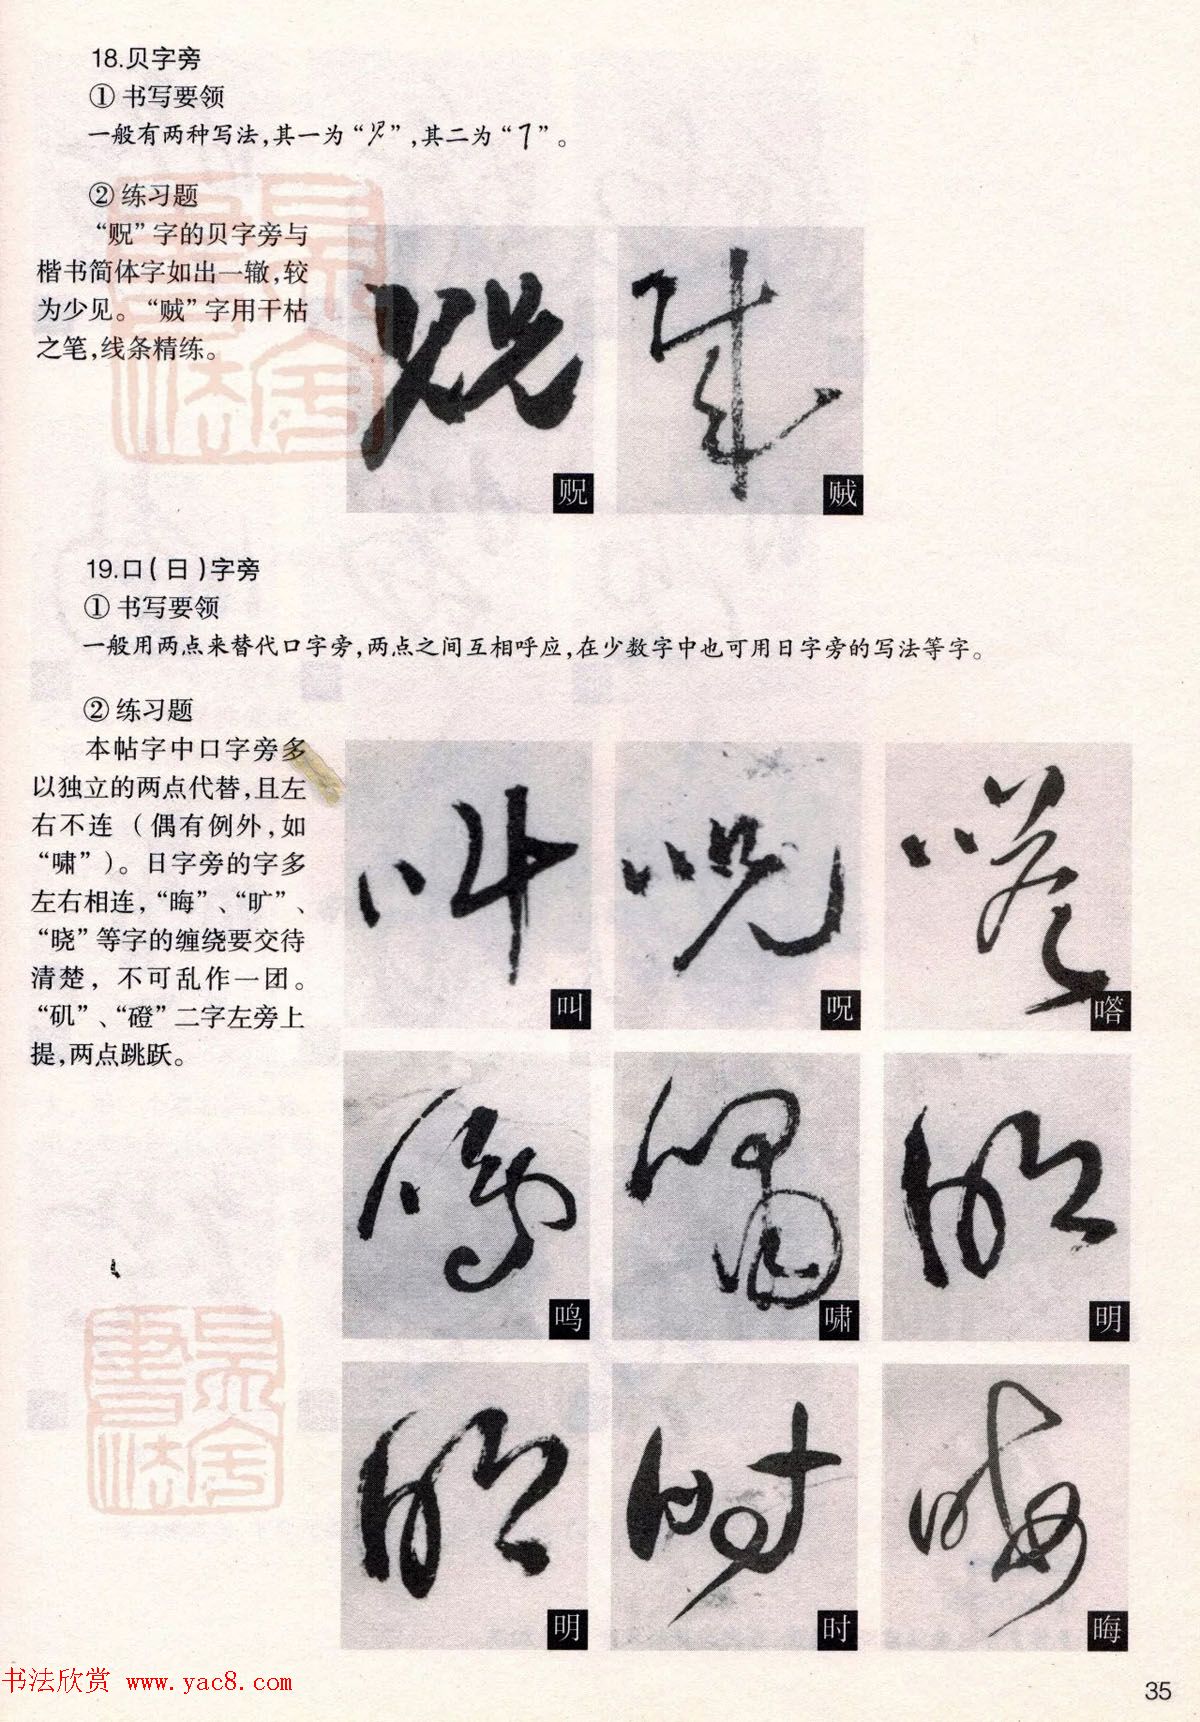 18.贝字旁
① 书写要领
一般有两种写法，其一为“”，其二为“”。
② 练习题
“贶”字的贝字旁与
楷书简体字如出一辙，较
为少见。“贼”字用干枯
之笔，线条精练。
贶
贼
19.口（日）字旁
① 书写要领
一般用两点来替代口字旁，两点之间互相呼应，在少数字中也可用日字旁的写法等字。
② 练习题
本帖字中口字旁多
以独立的两点代替，且左
右不连（偶有例外，如
“啸”）。日字旁的字多
左右相连，“晦”、“旷”、
“晓”等字的缠绕要交待
清楚，不可乱作一团。
“矶”、“磴”二字左旁上
提，两点跳跃。
叫
呪
嗒
鸣
啸
明
明
时
晦
书法欣赏 www.yac8.com
35